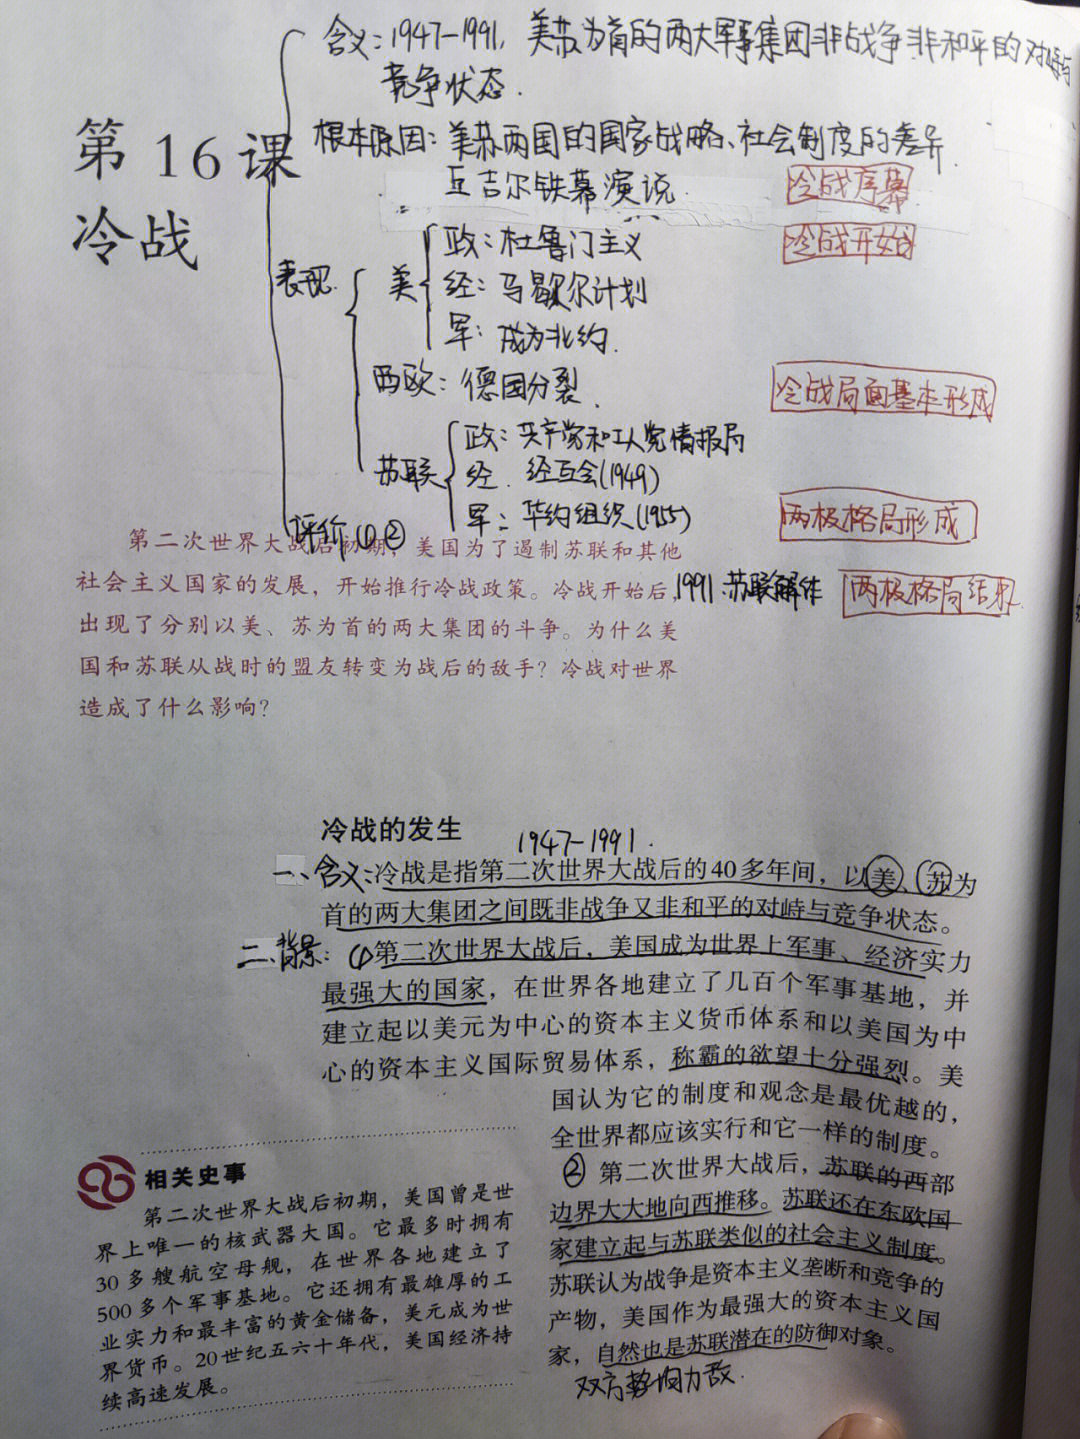 含义：1947-1991，美苏为首的两大军事集团非战争非和平的对峙与
竞争状态.
第16课
根本原因：美苏两国的国家战略、社会制度的差异.
丘吉尔铁幕演说 冷战序幕
冷战
表现
美
政：杜鲁门主义 冷战开始
经：马歇尔计划
军：成为北约.
西欧：德国分裂. 冷战局面基本形成
苏联
政：共产党和工人党情报局
经. 经互会(1949)
军：华约组织(1955) 两极格局形成
评价①②
第二次世界大战后初期，美国为了遏制苏联和其他
社会主义国家的发展，开始推行冷战政策。冷战开始后，
1991.苏联解体 两极格局结束
出现了分别以美、苏为首的两大集团的斗争。为什么美
国和苏联从战时的盟友转变为战后的敌手？冷战对世界
造成了什么影响？
冷战的发生 1947-1991.
一、含义：冷战是指第二次世界大战后的40多年间，以美、苏为
首的两大集团之间既非战争又非和平的对峙与竞争状态。
二、背景：①第二次世界大战后，美国成为世界上军事、经济实力
最强大的国家，在世界各地建立了几百个军事基地，并
建立起以美元为中心的资本主义货币体系和以美国为中
心的资本主义国际贸易体系，称霸的欲望十分强烈。美
国认为它的制度和观念是最优越的，
全世界都应该实行和它一样的制度。
②第二次世界大战后，苏联的西部
边界大大地向西推移。苏联还在东欧国
家建立起与苏联类似的社会主义制度。
苏联认为战争是资本主义垄断和竞争的
产物，美国作为最强大的资本主义国
家，自然也是苏联潜在的防御对象。
双方势均力敌.
相关史事
第二次世界大战后初期，美国曾是世
界上唯一的核武器大国。它最多时拥有
30多艘航空母舰，在世界各地建立了
500多个军事基地。它还拥有最雄厚的工
业实力和最丰富的黄金储备，美元成为世
界货币。20世纪五六十年代，美国经济持
续高速发展。